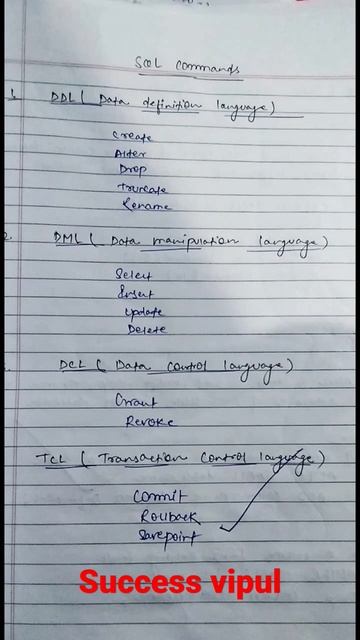 SQL commands
1. DDL ( Data definition language )
Create
Alter
Drop
Truncate
Rename
2. DML ( Data manipulation language )
Select
Insert
Update
Delete
DCL ( Data control language )
Grant
Revoke
TCL ( Transaction control language )
Commit
Rollback
Savepoint
Success vipul